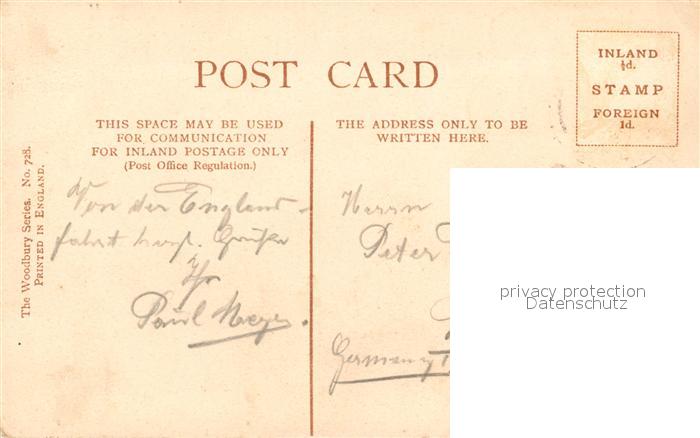 POST CARD
INLAND
½d.
STAMP
FOREIGN
1d.
THIS SPACE MAY BE USED
FOR COMMUNICATION
FOR INLAND POSTAGE ONLY
(Post Office Regulation.)
THE ADDRESS ONLY TO BE
WRITTEN HERE.
The Woodbury Series. No. 728.
PRINTED IN ENGLAND.
Von der England-
fahrt herzl. Grüße
Ihr
Paul Meyer.
Herrn
Peter
Germany
privacy protection
Datenschutz